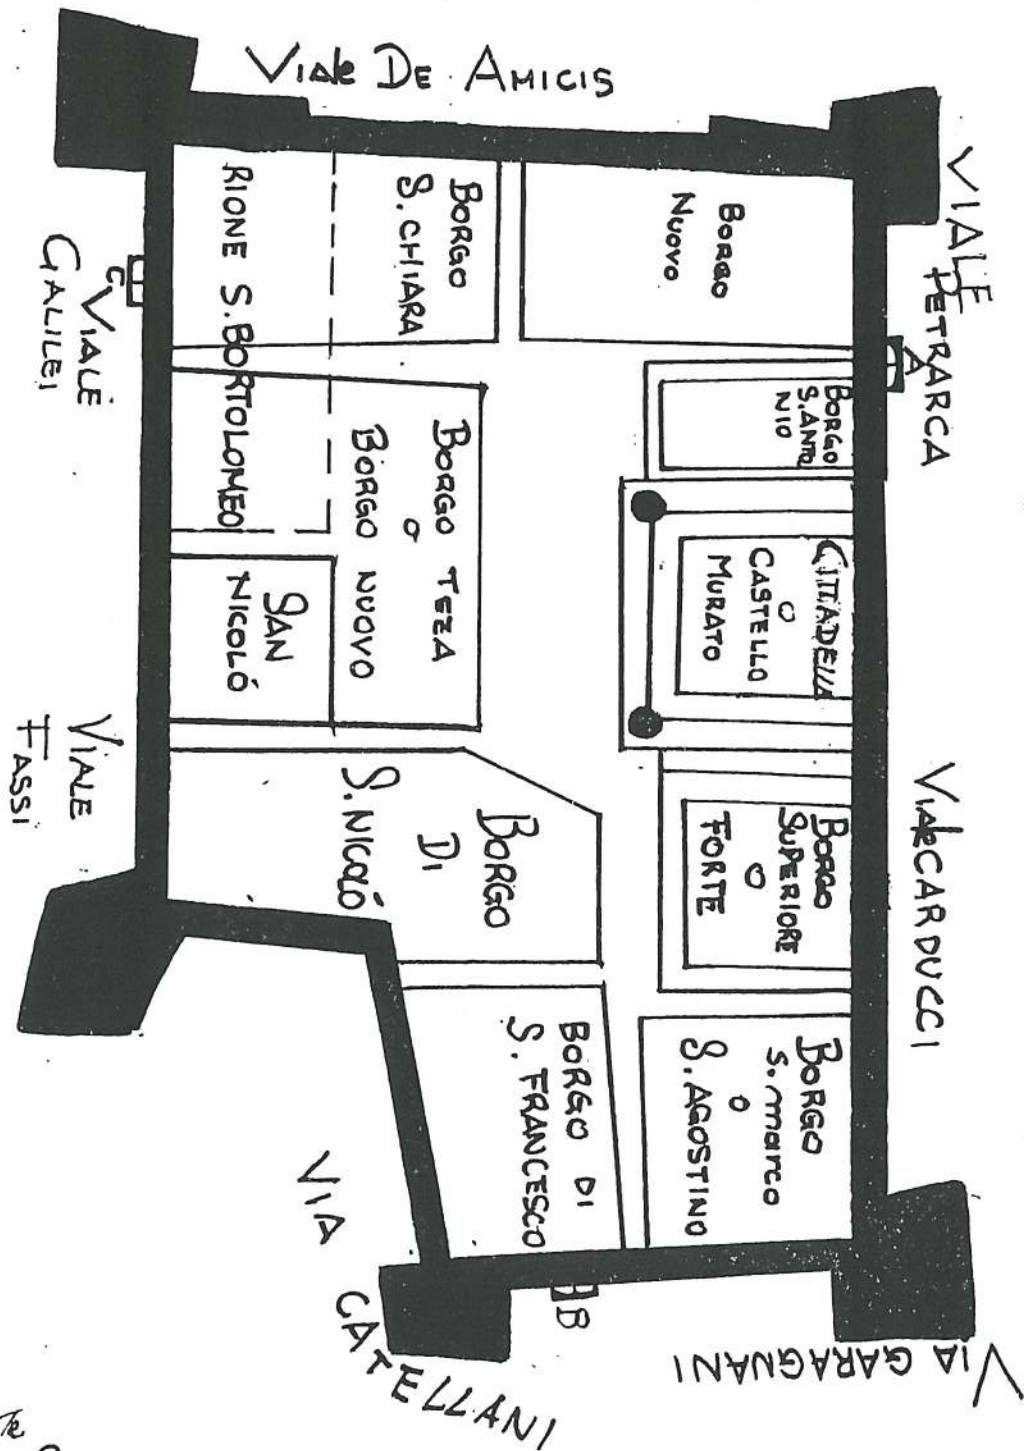 Viale De Amicis
VIALE
PETRARCA
A
Viale CARDUCCI
VIA GARAGNANI
B
VIA
CATELLANI
VIALE
FASSI
VIALE
GALILEI
C
BORGO
NUOVO
BORGO
S. CHIARA
RIONE S. BORTOLOMEO
BORGO
S. ANTO
NIO
CITTADELLA
O
CASTELLO
MURATO
BORGO TEZA
O
BORGO NUOVO
SAN
NICOLÓ
BORGO
SUPERIORE
O
FORTE
BORGO
DI
S. NICOLÓ
BORGO
S. MARCO
O
S. AGOSTINO
BORGO DI
S. FRANCESCO